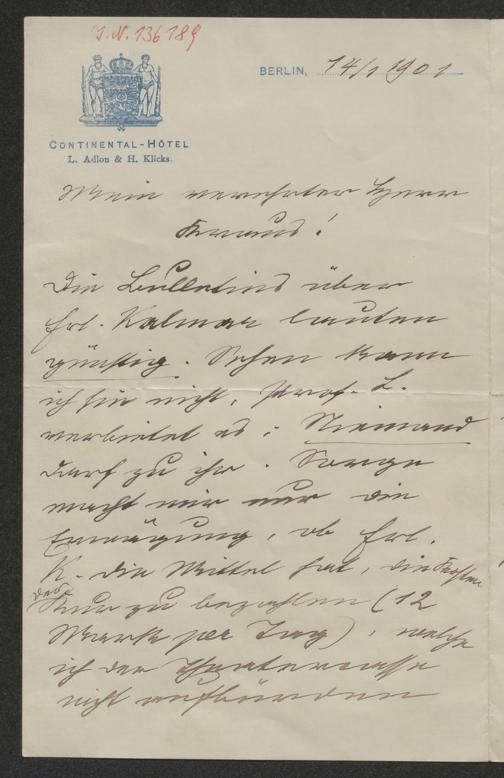 I.N. 136189
BERLIN, 14/1 1901
CONTINENTAL-HÔTEL
L. Adlon & H. Klicks.
Mein verehrter Herr
Kraus!
Die Bulletins über
Frl. Kalmar lauten
günstig. Sehen kann
ich sie nicht, Prof. L.
verbietet es; Niemand
darf zu ihr. Sorge
macht mir nur die
Erwägung, ob Frl.
K. die Mittel hat, die Kosten
der Kur zu bezahlen (12
Mark per Tag), welche
ich der Theatercasse
nicht aufbürden